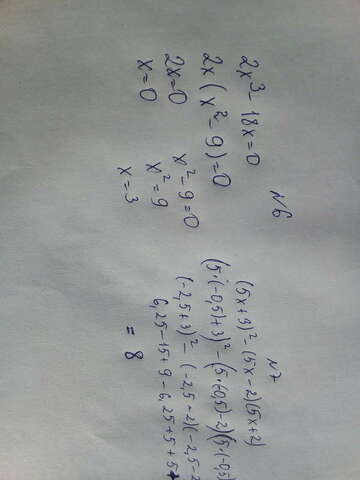 N6
2x³ - 18x = 0
2x (x² - 9) = 0
2x = 0 x² - 9 = 0
x = 0 x² = 9
x = 3
N7
(5x+3)² - (5x-2)(5x+2)
(5·(-0,5)+3)² - (5·(-0,5)-2)(5·(-0,5)
(-2,5+3)² - (-2,5-2)(-2,5-2
6,25-15+9-6,25+5+5+
= 8